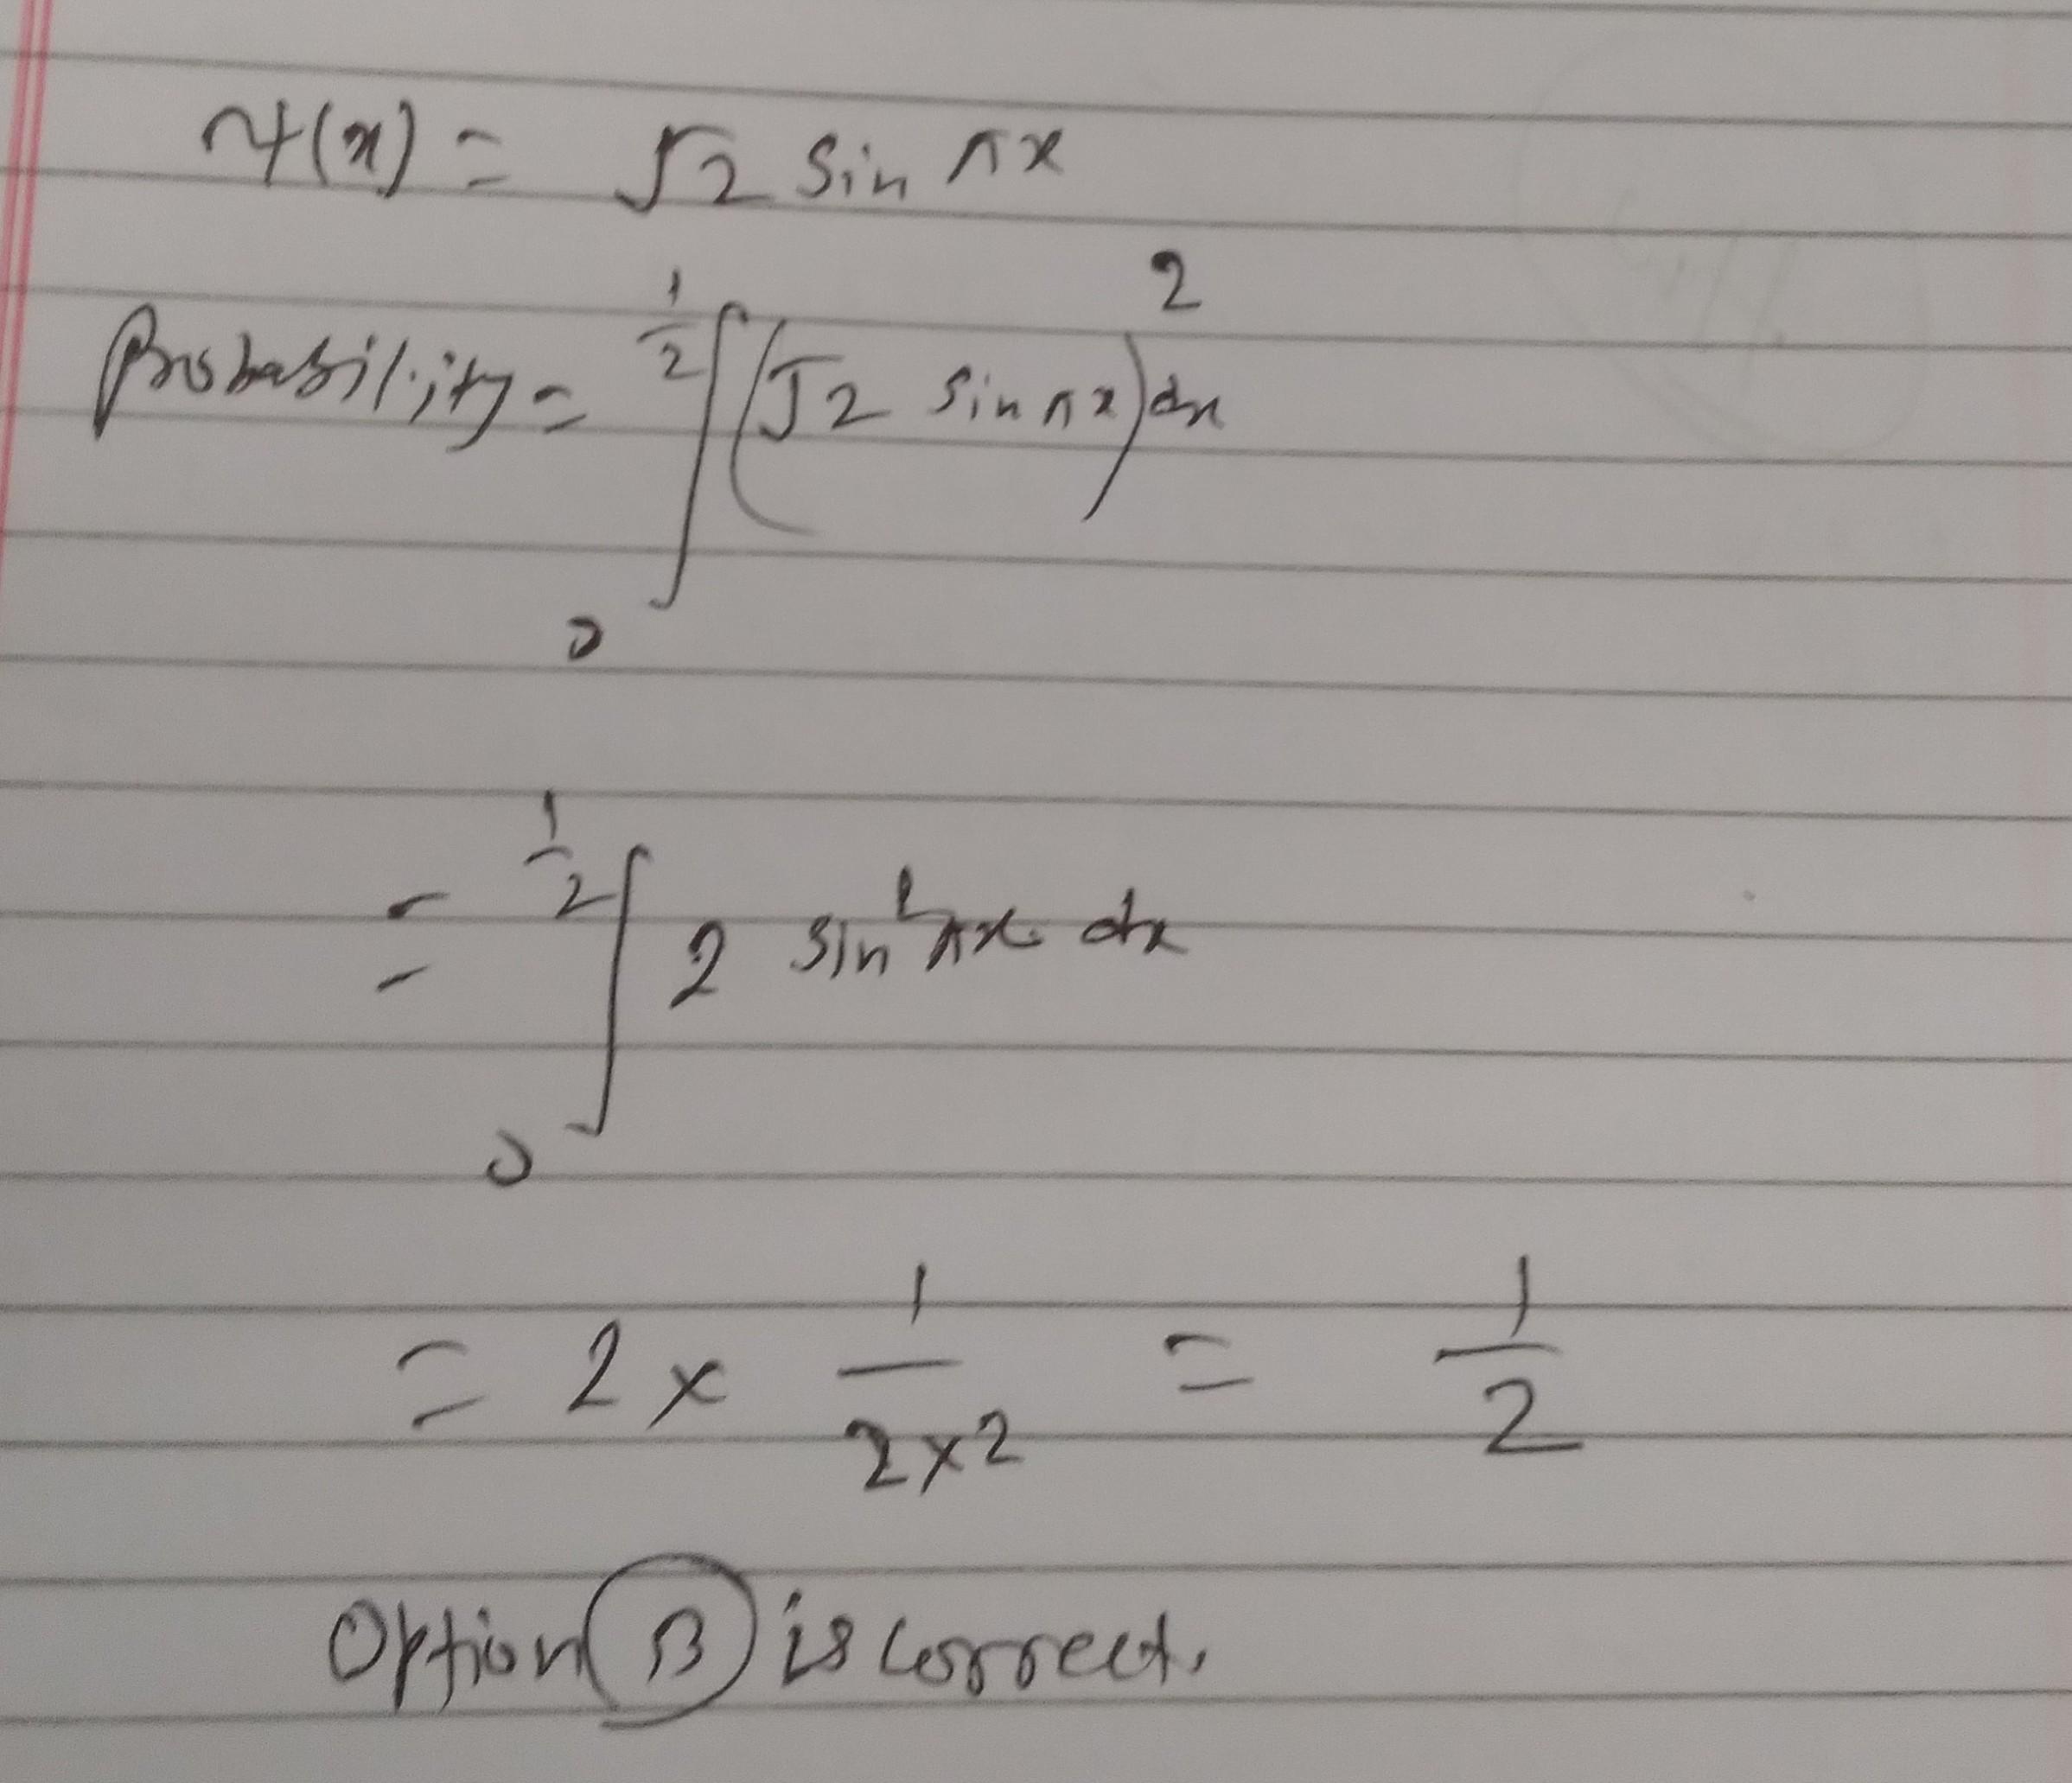 ψ(x) = √2 sin πx
Probability = ∫₀^(1/2) (√2 sin πx)² dx
= ∫₀^(1/2) 2 sin² πx dx
= 2 × 1/(2×2) = 1/2
Option B is correct.